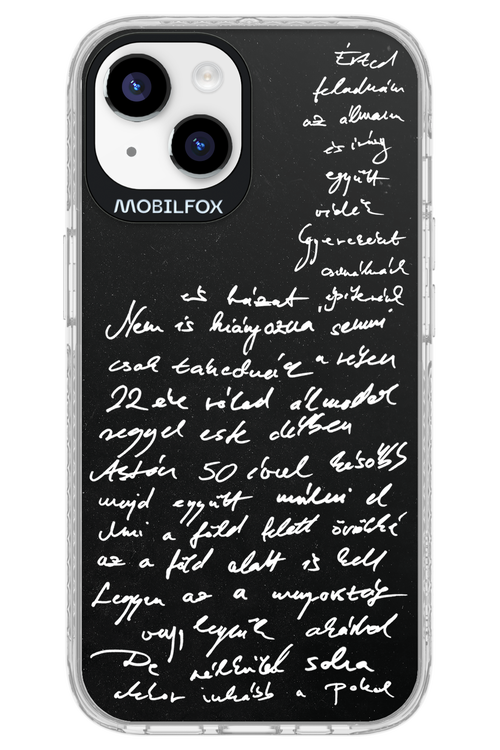 Érted
feladnám
az álmaim
és így
együtt
veled
Gyerekeket
csinálnék
MOBILFOX
és házat építenék
Nem is hiányozna semmi
csak takednék a réten
22 éve rólad álmodok
reggel este délben
Aztán 50 évvel később
majd együtt múlni el
Ami a föld felett örökké
az a föld alatt is kell
Legyen az a mennyország
vagy legyünk akárhol
De nélküled soha
akkor inkább a Pokol